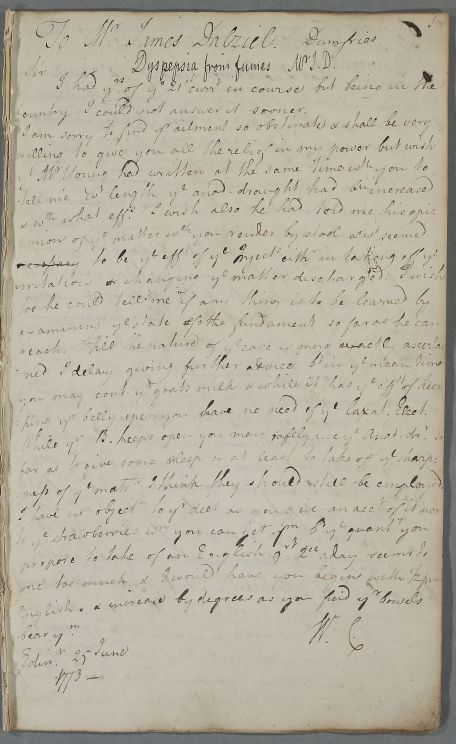 To Mr. James Dalziel. Dumfries
Dyspepsia from fumes Mr. J. D.
Sir
I had yrs of ye 21st curt in course but being in the
country I could not answer it sooner.
I am sorry to find yr ailment so obstinate & shall be very
willing to give you all the relief in my power but wish
yt Mr Young had written at the same time wth you to
tell me wt length ye anod. draught had bn increased
& wth what efft. I wish also he had told me his opi-
nion of ye matter wch you render by stool & wt seemed
to be ye efft of ye Inject. eithr in taking off ye
irritation or changing ye matter discharged. I wish
too he could tell me if any thing is to be learned by
examining ye state of the fundament so far as he can
reach. Till the nature of ye case is more exactly ascertai-
ned I delay giving further advice bt in ye mean time
you may cont. ye goats milk & while it has ye efft of kee-
ping yr belly open you have no need of ye laxat. Elect.
While yr B. keeps open you may safely use ye Anod. dr. so
far as to give some sleep or at least to take of ye sharp-
ness of ye matt. I think they should still be employed.
I have no objectn to yr diet as you give an acct of it nor
to ye strawberries wn you can get ym bt ye quanty you
propose to take of an English qrt a day seems to
me too much & I would have you begin with ½ pint
English & increase by degrees as you find yr bowels
bear ym.
W. C.
Edinr. 25 June
1773